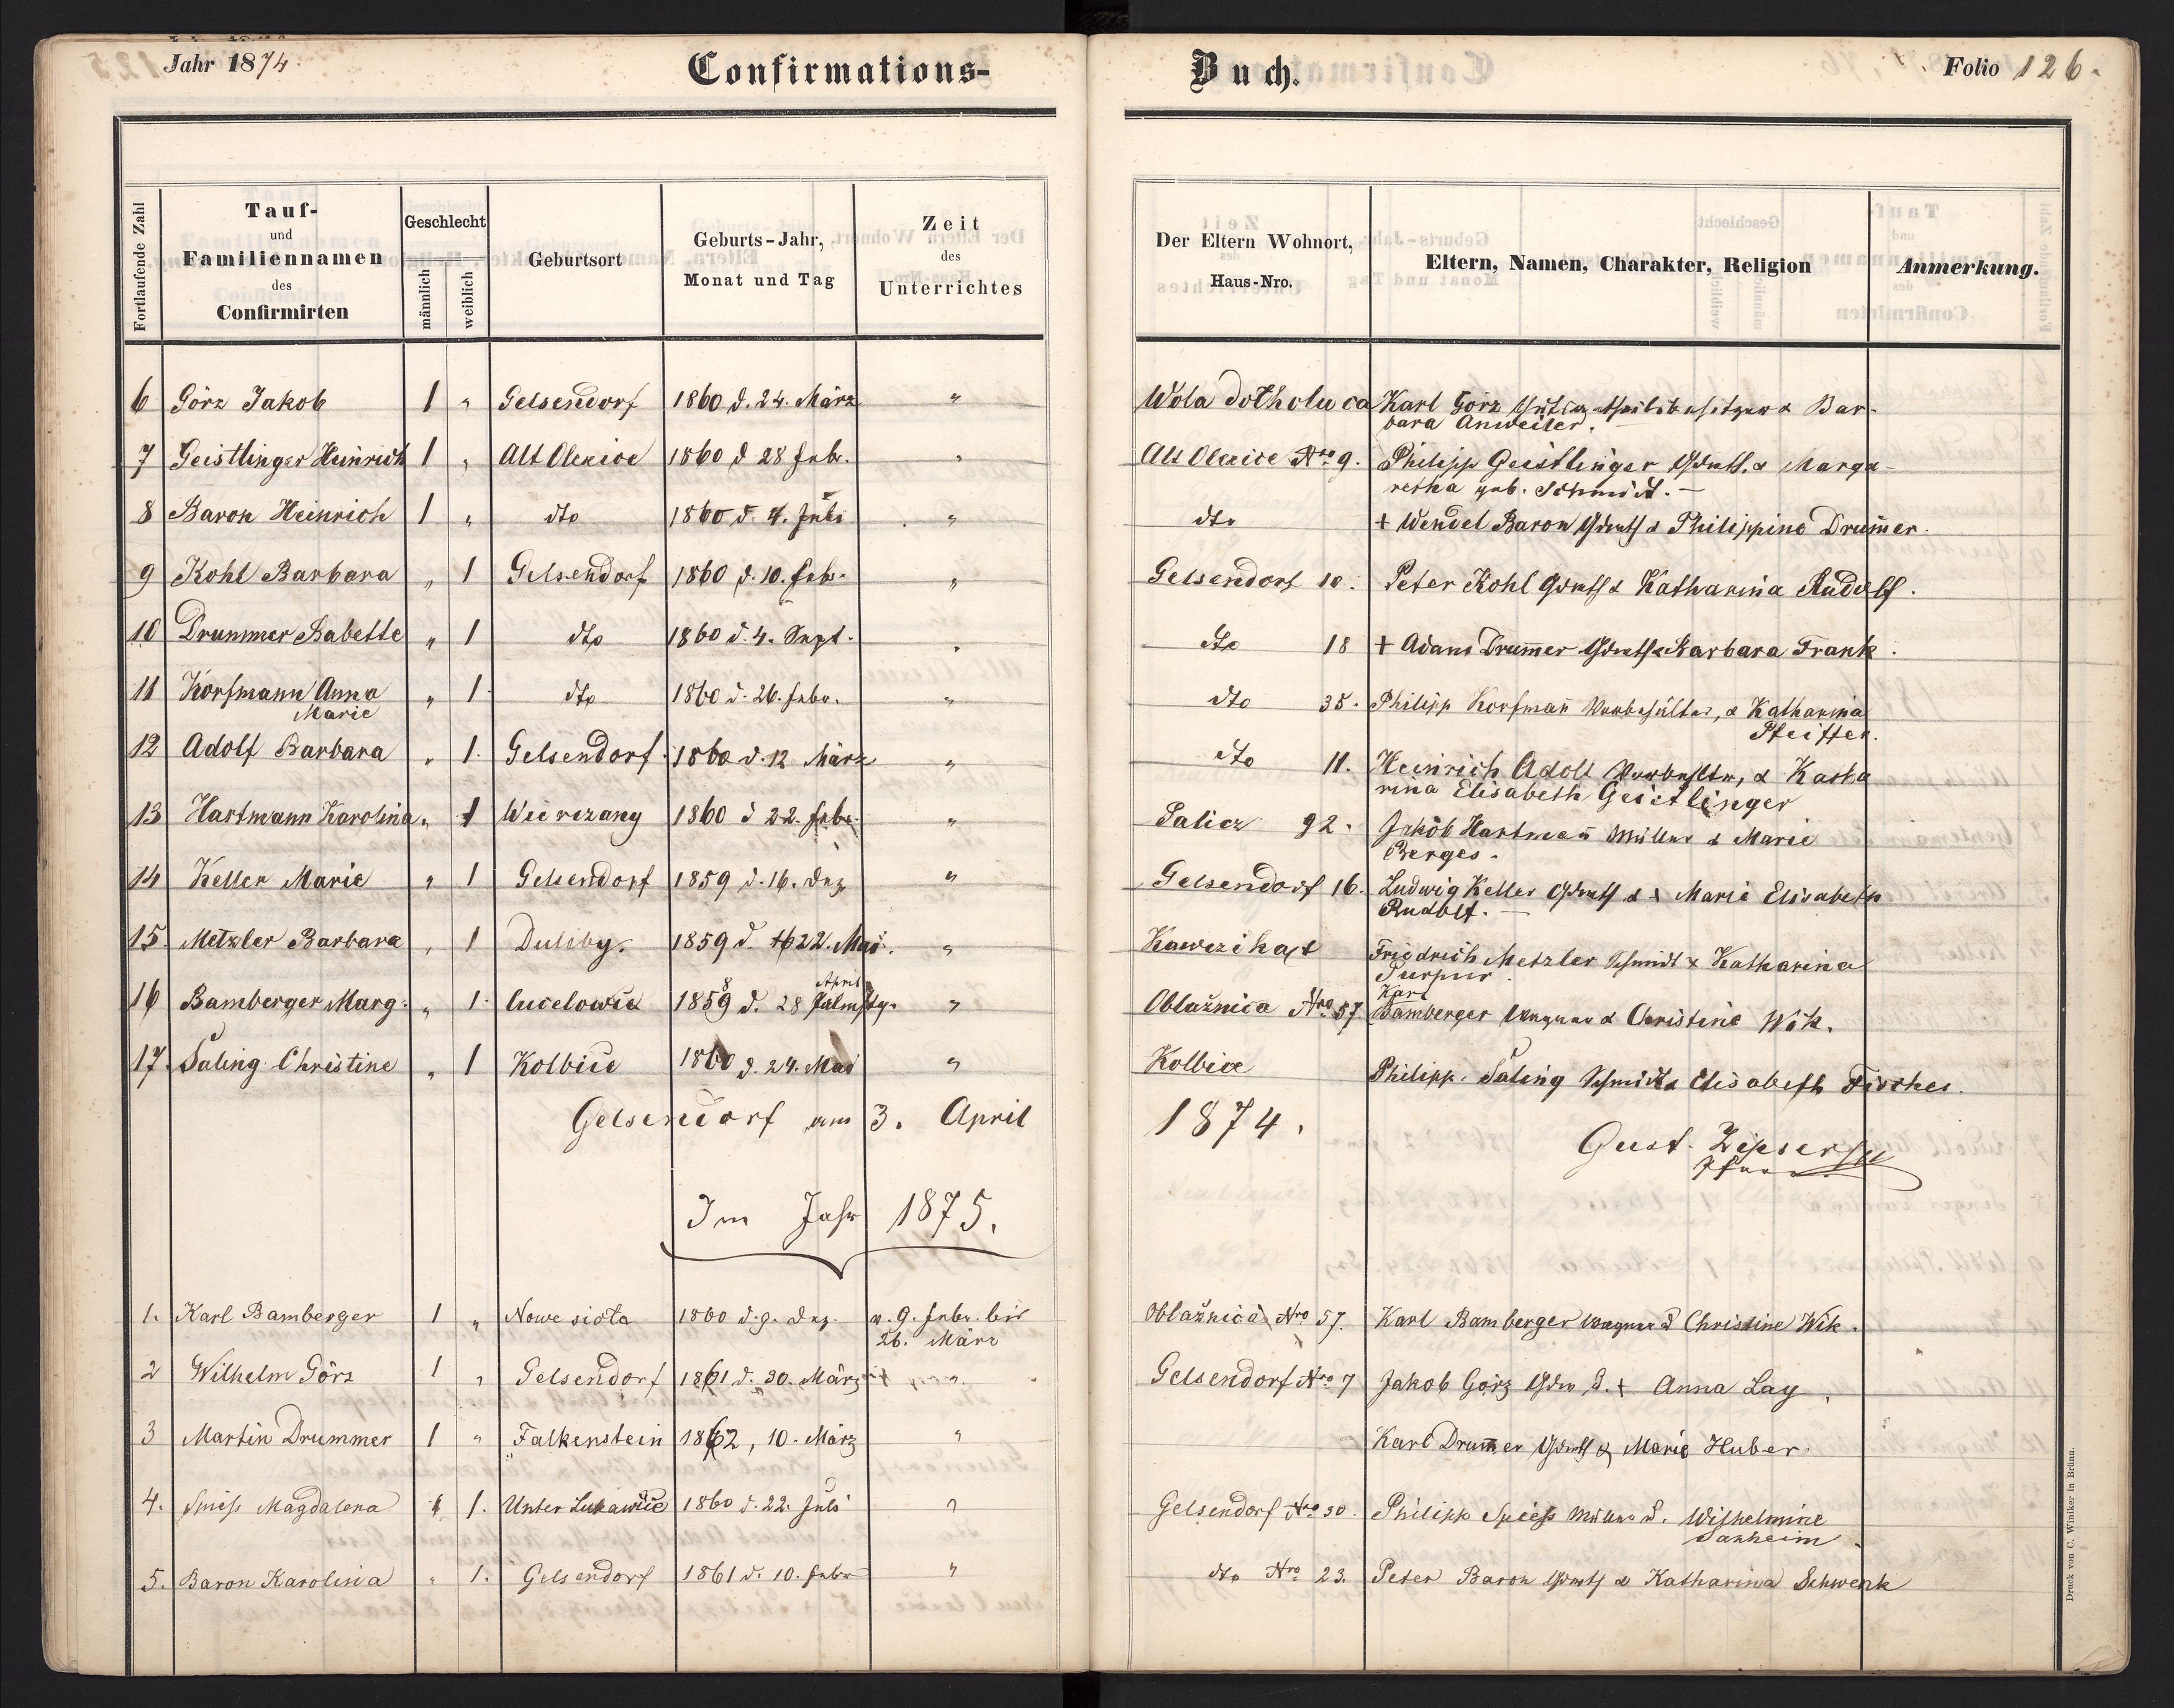 Jahr 1874.
Confirmations-
Buch.
Folio 126.
Fortlaufende Zahl
Tauf-
und
Familiennamen
des
Confirmirten
Geschlecht
männlich
weiblich
Geburtsort
Geburts-Jahr,
Monat und Tag
Zeit
des
Unterrichtes
Der Eltern Wohnort,
Haus-Nro.
Eltern, Namen, Charakter, Religion
Anmerkung.
6 Görz Jakob 1 " Gelsendorf 1860 d. 24. März " Wola Karl Görz & Bar-
bara Anweiler.
7 Geistlinger Heinrich 1 " Alt Olexice 1860 d 28 Febr. " Alt Olexice Nro 9. Philipp Geistlinger Grundb. & Marga-
retha geb. Schmidt. —
8 Baron Heinrich 1 " dto 1860 d. 4. Juli " dto + Wendel Baron Grundb & Philippine Drum̄er.
9 Kohl Barbara " 1 Gelsendorf 1860 d. 10. Febr. " Gelsendorf 10. Peter Kohl Grundb & Katharina Rudolf.
10 Drummer Babette " 1 dto 1860 d. 4. Sept. " dto 18 + Adam Drum̄er Grundb & Barbara Frank.
11 Korfmann Anna
Marie " 1. dto 1860 d. 26. Febr. " dto 35. Philipp Korfman̄ & Katharina
Pfeiffer.
12 Adolf Barbara " 1. Gelsendorf. 1860 d. 12 März " dto 11. Heinrich Adolf & Katha
rina Elisabeth Geistlinger
13 Hartmann Karolina " 1 Wierczany 1860 d 22. Febr. " Salicz 92. Jakob Hartman̄ Müller & Marie
Berges.
14 Keller Marie " 1 Gelsendorf 1859 d. 16. Dez " Gelsendorf 16. Ludwig Keller Grundb & + Marie Elisabeth
Rudolf. —
15. Metzler Barbara " 1 Duliby. 1859 d. 22. Mai. " Friedrich Metzler Schmidt & Katharina
Purpur.
16 Bamberger Marg. " 1. Lucelowia 1858 d. 28 April " Oblažnica Nro 57. Karl
Bamberger Wagner & Christine Wik.
17. Saling Christine " 1 Kolbice 1860 d. 24. Mai " Kolbice Philipp Saling Schmidt & Elisabeth Fischer.
Gelsendorf am 3. April 1874.
Gust. Zipser
Pfarrer
Im Jahr 1875.
1. Karl Bamberger 1 " Nowe siola 1860 d. 9. Dez. v. 9. Febr. bis
26. März Oblažnica Nro 57. Karl Bamberger Wagner & Christine Wik.
2 Wilhelm Görz 1 " Gelsendorf 1861 d. 30. März " Gelsendorf Nro 7 Jakob Görz & + Anna Lay.
3 Martin Drummer 1 " Falkenstein 1862, 10. März " Karl Drum̄er Grundb & Marie Huber.
4. Spiess Magdalena " 1. Unter Lukawice 1860 d. 22. Juli " Gelsendorf Nro 30. Philipp Spiess Müller & Wilhelmine
Sanheim.
5. Baron Karolina " 1. Gelsendorf 1861 d. 10. Febr " dto Nro 23. Peter Baron Grundb & Katharina Schwenk
Druck von C. Winiker in Brünn.